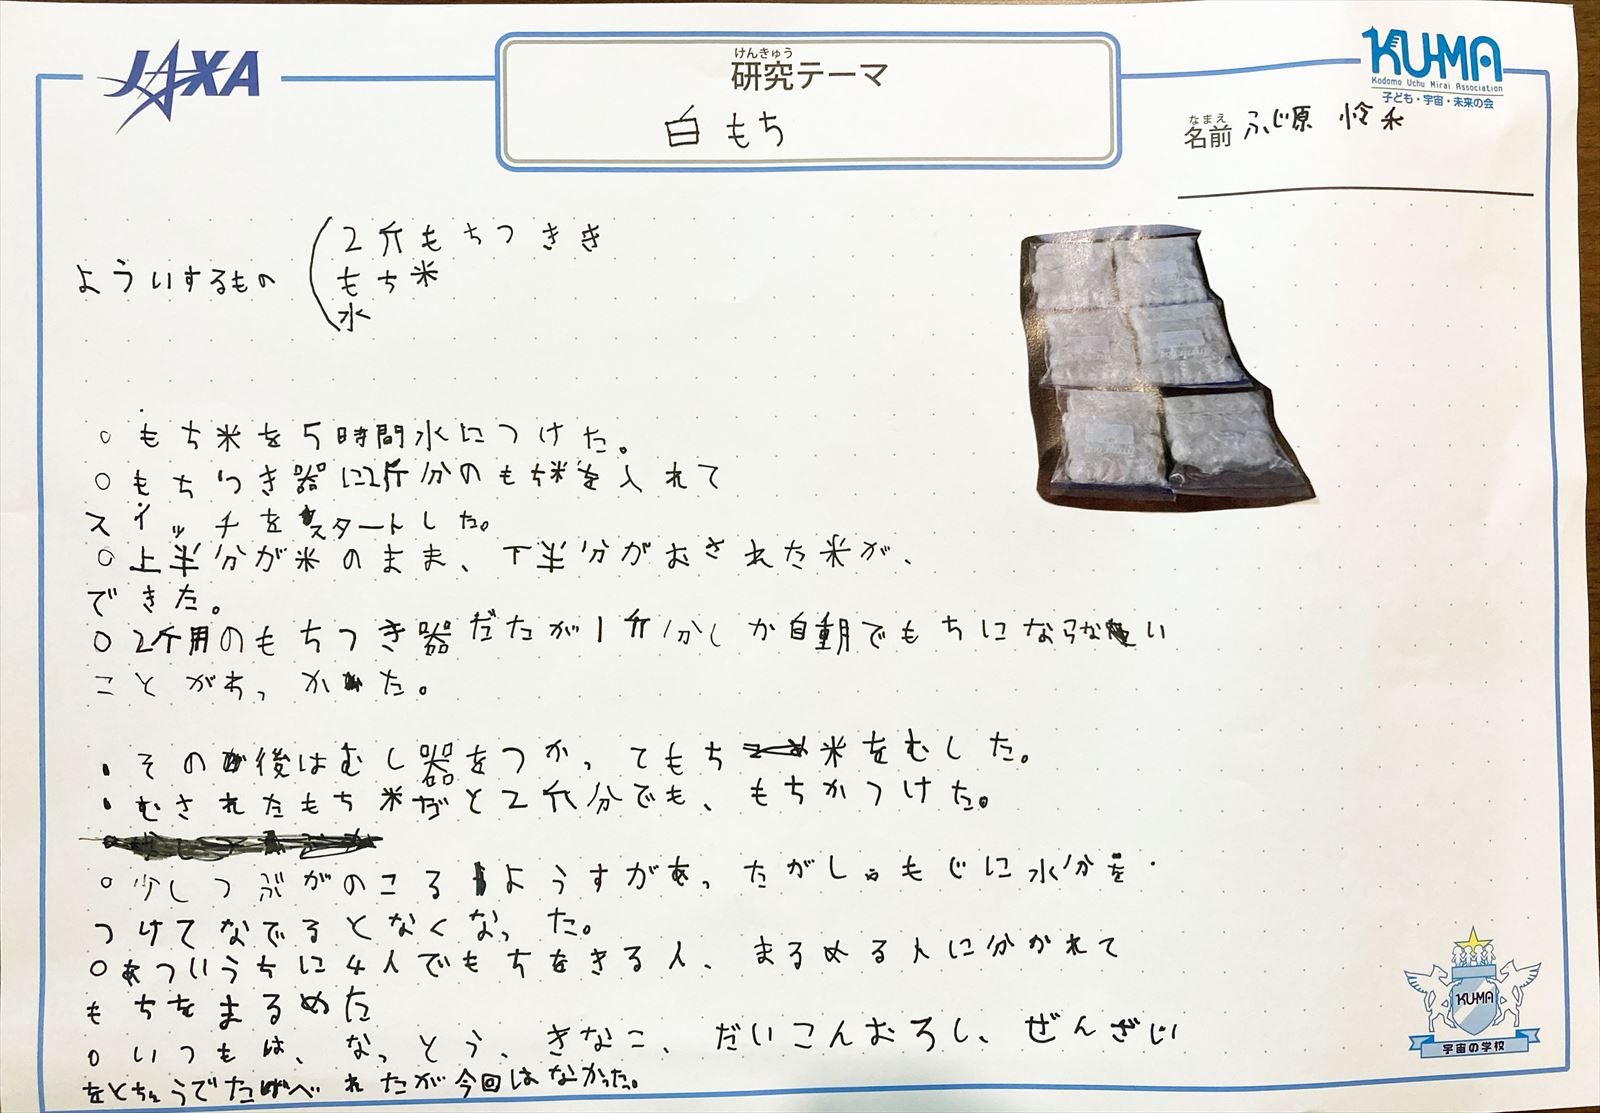 JAXA
けんきゅう
研究テーマ
白もち
KU-MA
Kodomo Uchu Mirai Association
子ども・宇宙・未来の会
なまえ
名前 ふじ原 怜永
よういするもの
2斤もちつきき
もち米
水
○もち米を5時間水につけた。
○もちつき器に2斤分のもち米を入れて
スイッチをスタートした。
○上半分が米のまま、下半分がおされた米が、
できた。
○2斤用のもちつき器だたが1斤分しか自動でもちにならない
ことがわっかた。
・その後はむし器をつかってもち米をむした。
・むされたもち米だと2斤分でも、もちがつけた。
○少しつぶがのこるようすがあったがしゃもじに水分を
つけてなでるとなくなった。
○あついうちに4人でもちをきる人、まるめる人に分かれて
もちをまるめた
○いつもは、なっとう、きなこ、だいこんおろし、ぜんざい
をとちゅうでたべれたが今回はなかった。
KU-MA
宇宙の学校